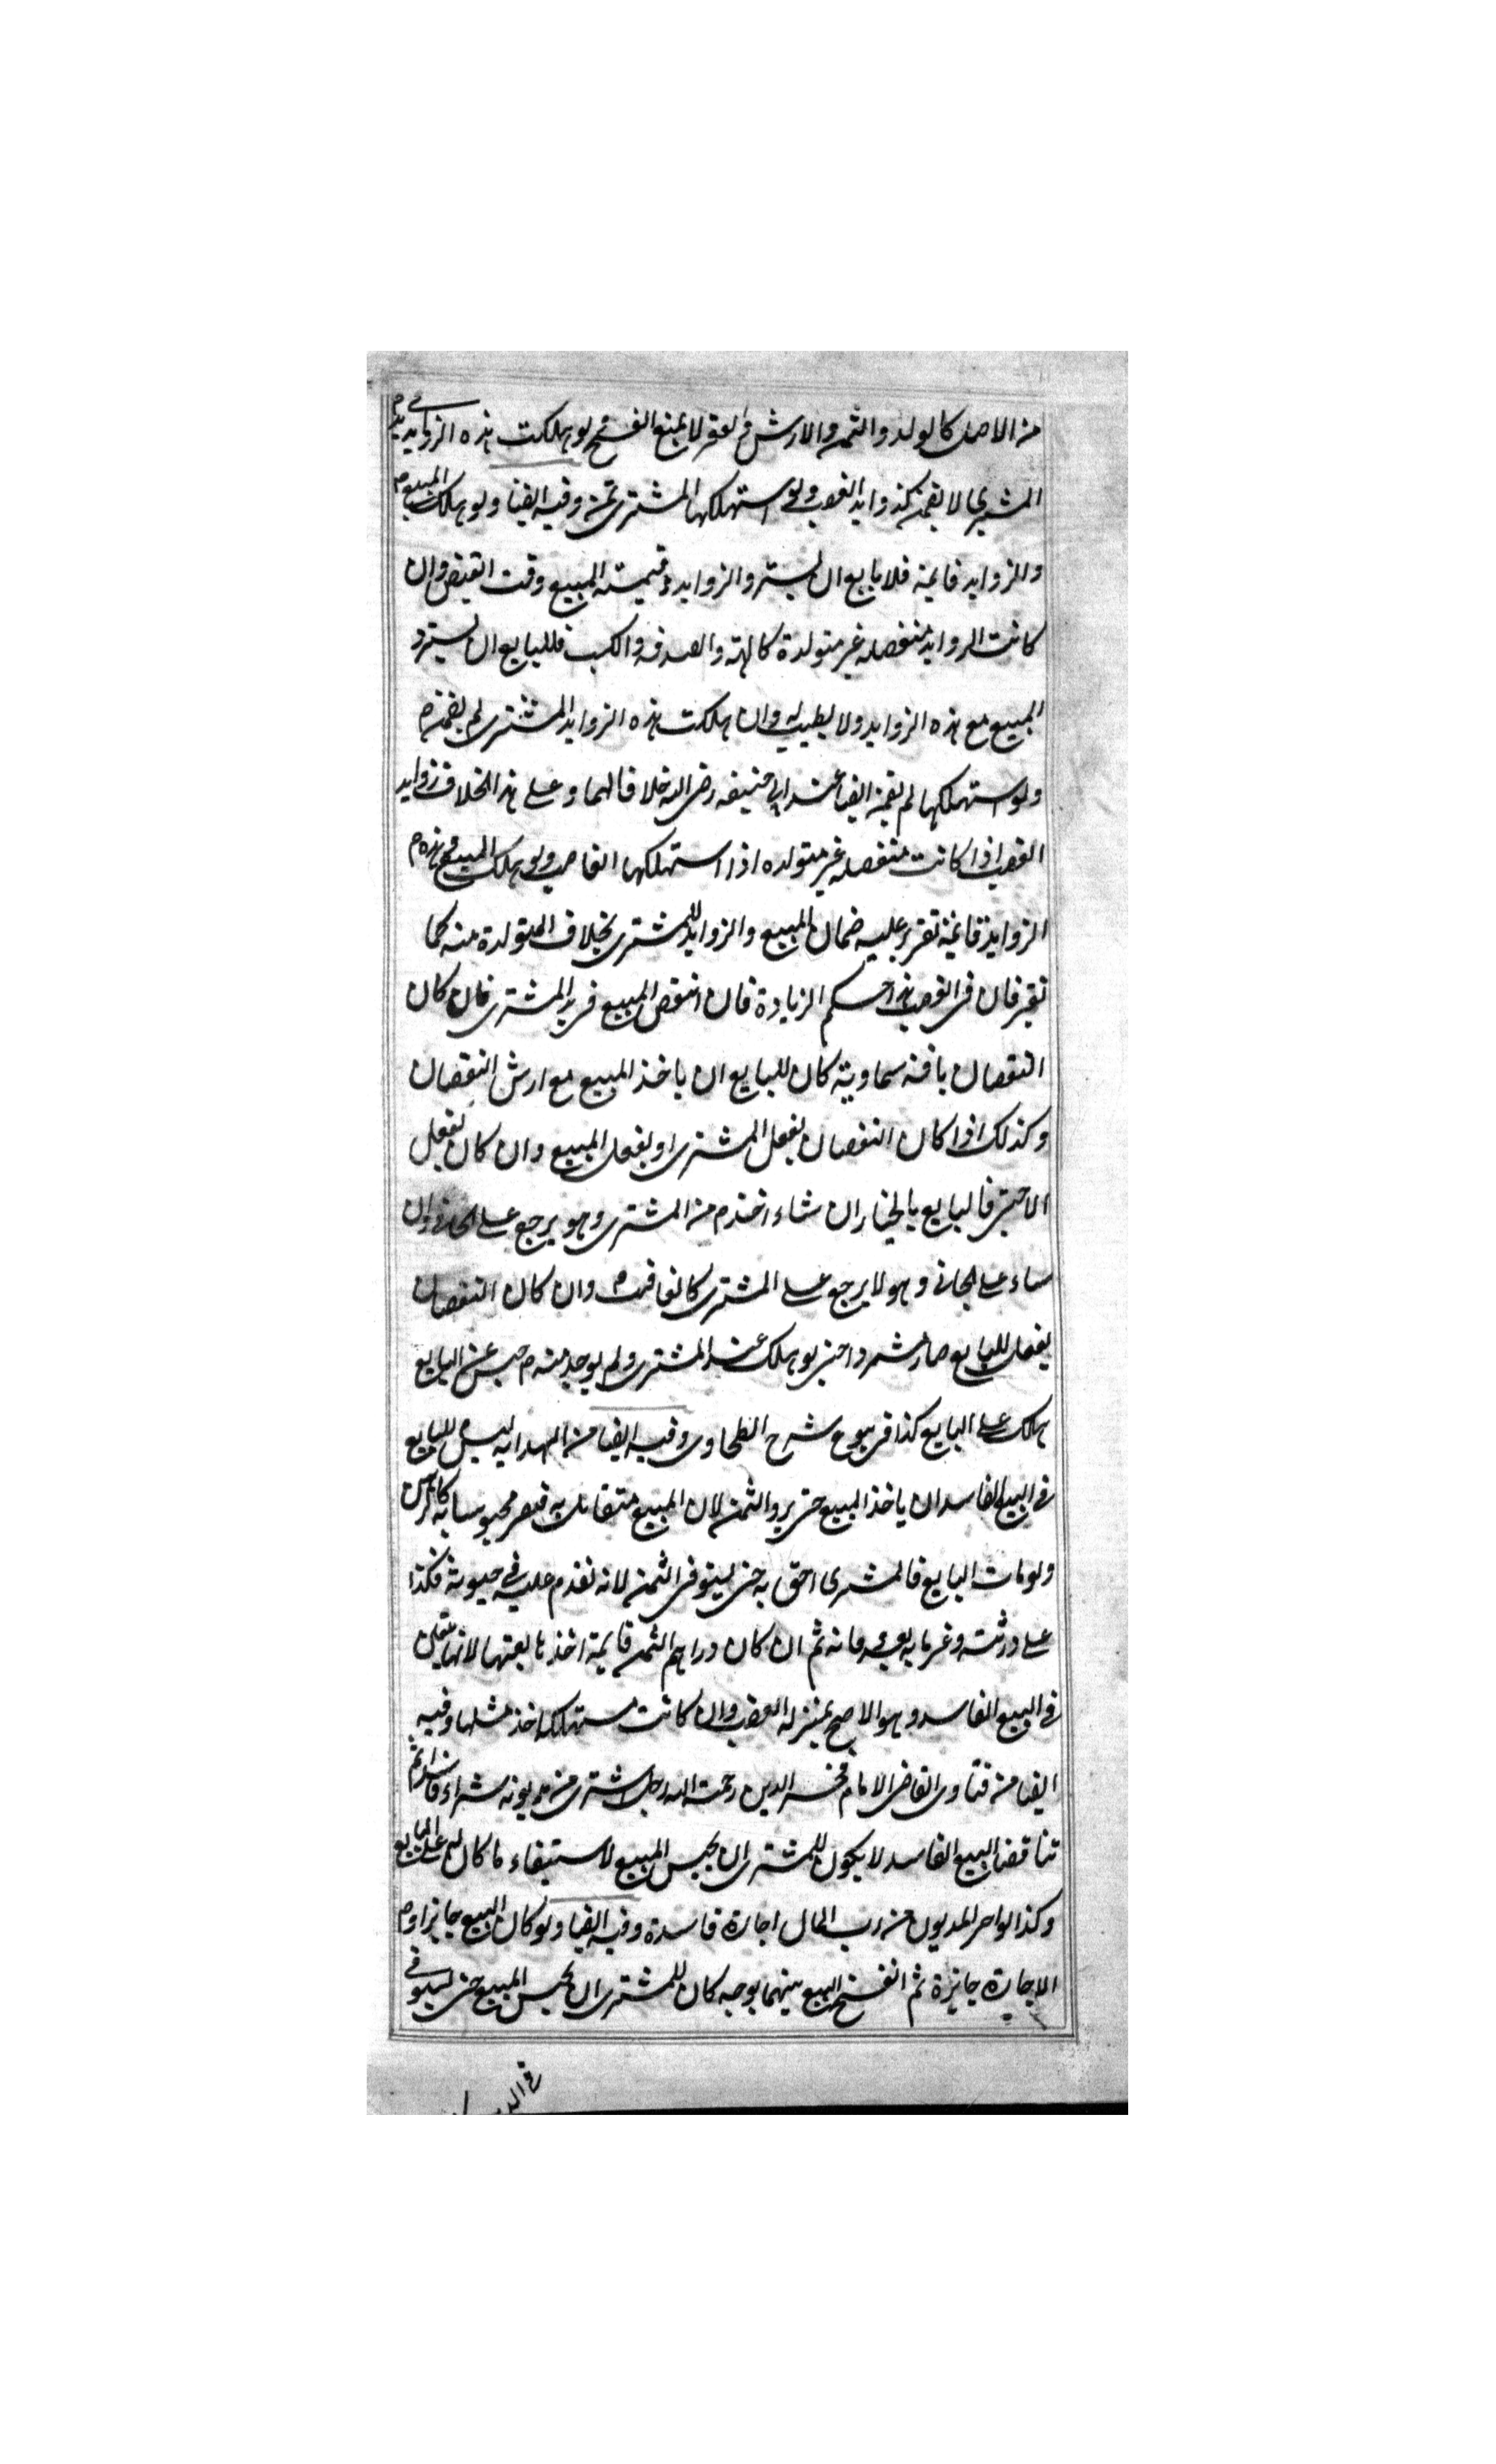 من الاصل كالولد والثمر والارش والعقر لا يمنع الفسخ ولو هلكت هذه الزوايد في يد
المشتري لا يضمن كزوايد الغصب ولو استهلكها المشتري ضمن وفيه ايضا ولو هلك المبيع
والزوايد قايمة فللبايع ان يسترد الزوايد وقيمة المبيع وقت القبض وان
كانت الزوايد منفصله غير متولدة كالهبة والصدقه والكسب فللبايع ان يسترد
المبيع مع هذه الزوايد ولا يطيب له وان هلكت هذه الزوايد المشتري لم يضمن
ولو استهلكها لم يضمن ايضا عند ابي حنيفه رضي الله خلافا لهما وعلى هذا الخلاف زوايد
الغصب اذا كانت منفصله غير متولده اذا استهلكها الغاصب ولو هلك المبيع هذه
الزوايد قايمة تقرر عليه ضمان المبيع والزوايد للمشتري بخلاف المتولدة منه كما
في الغصب هذا حكم الزيادة فان انتقص المبيع في يد المشتري فان كان
النقصان بافة سماوية كان للبايع ان ياخذ المبيع مع ارش النقصان
وكذلك اذا كان النقصان بفعل المشتري او بفعل المبيع وان كان بفعل
الاجنبي فالبايع بالخيار ان شاء اخذه من المشتري وهو يرجع على الجاني وان
شاء على الجاني وهو لا يرجع على المشتري كالغاصب وان كان النقصان
بفعل البايع صار مستردا حتى لو هلك عند المشتري ولم يوجد منه حبس عن البايع
هلك على البايع كذا في بيوع شرح الطحاوي وفيه ايضا من الهدايه ليس للبايع
في البيع الفاسد ان ياخذ المبيع حتى يرد الثمن لان المبيع مقابل به فيصير محبوسا به كالرهن
ولو مات البايع فالمشتري احق به حتى يستوفي الثمن لانه تقدم عليه في حيوته فكذا
على ورثته وغرمايه بعد وفاته ثم ان كان دراهم الثمن قايمة اخذها بعينها لانها تتعين
في البيع الفاسد وهو الاصح بمنزله الغصب وان كانت مستهلكه اخذ مثلها وفيه
ايضا من فتاوى القاضي الامام فخر الدين رحمة الله رجل اشترى من مديونه شراء فاسدا ثم
تناقضا البيع الفاسد لا يكون للمشتري ان يحبس المبيع لاستيفاء ما كان له على البايع
وكذا لو اجر المديون من رب المال اجارة فاسدة وفيه ايضا ولو كان البيع جايزا او
الاجارة جايزة ثم انفسخ البيع بينهما بوجه كان للمشتري ان يحبس المبيع حتى يستوفي